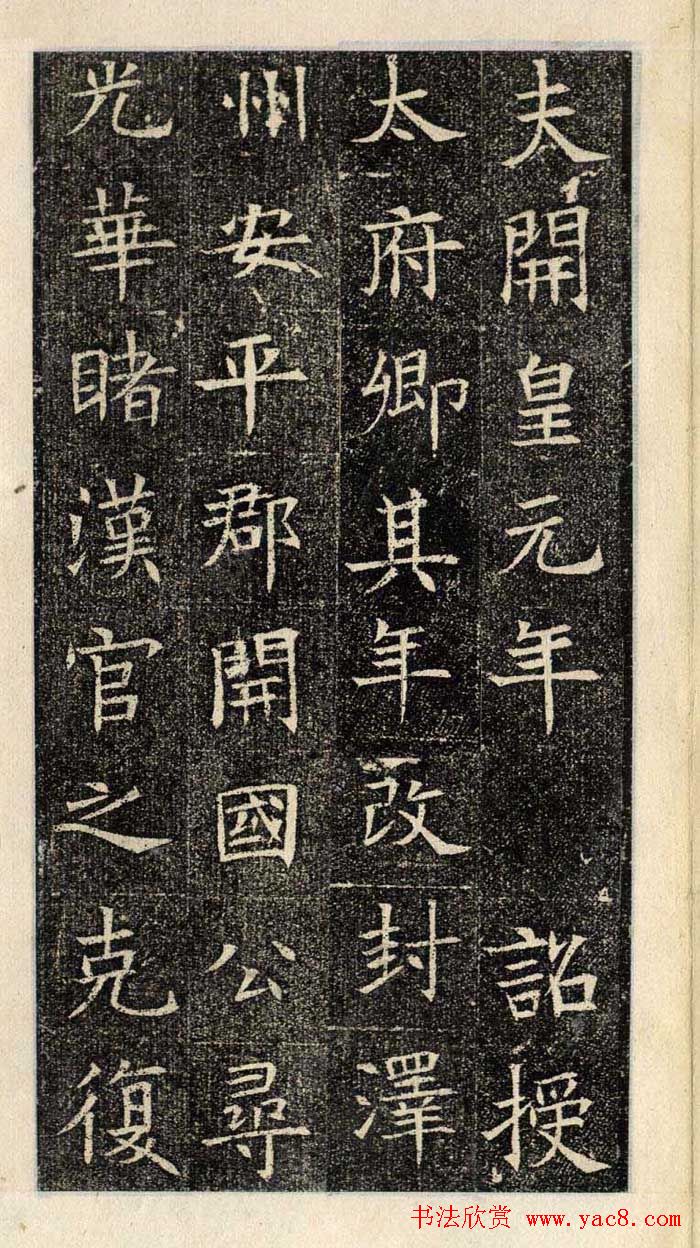 夫開皇元年 詔授
太府卿其年改封澤
州安平郡開國公尋
光華睹漢官之克復
书法欣赏 www.yac8.com